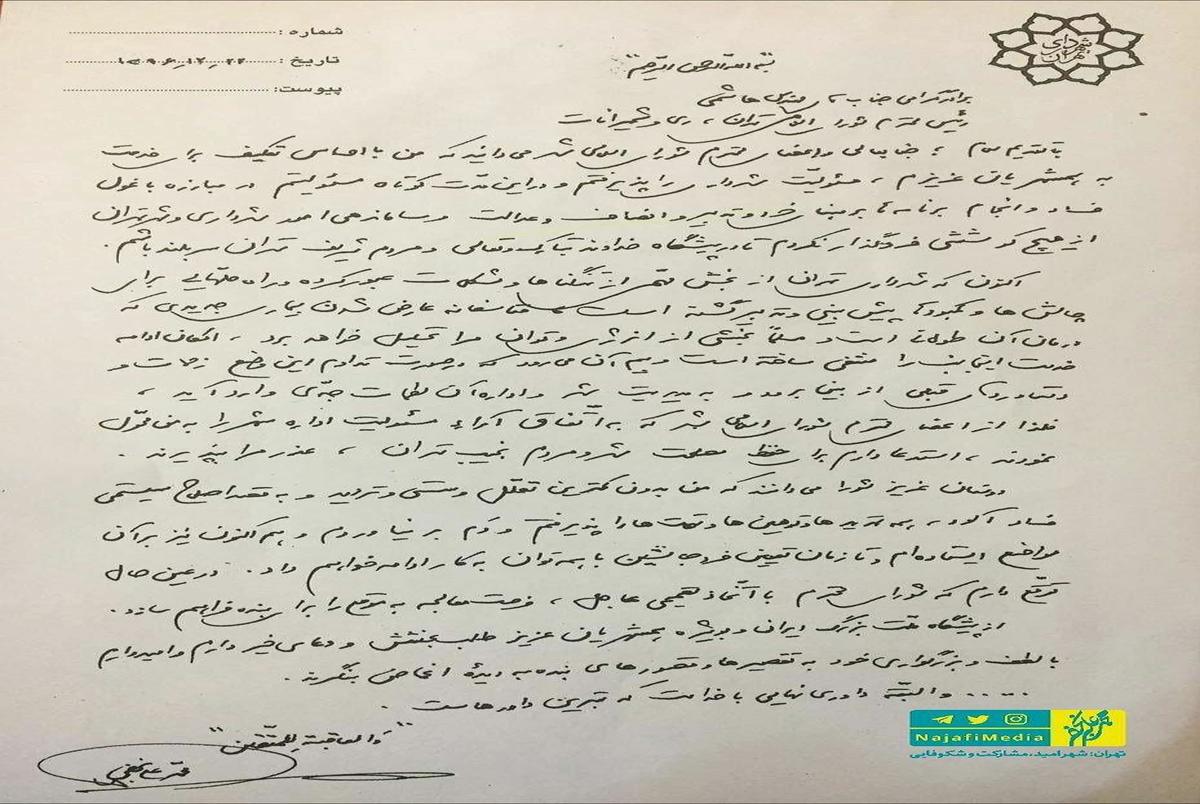 شهرداری تهران
شماره :
تاریخ : ۱۳۹۶,۱۲,۲۲
پیوست:
"بسم الله الرحمن الرحیم"
برادر گرامی جناب آقای مهندس هاشمی
رئیس محترم شورای اسلامی تهران، ری و شمیرانات
با تقدیم سلام ؛ جنابعالی و اعضای محترم شورای اسلامی شهر می‌دانید که من با احساس تکلیف برای خدمت
به همشهریان عزیزم ، مسئولیت شهرداری را پذیرفتم و در این مدت کوتاه مسئولیتم در مبارزه با غول
فساد و انجام برنامه‌ها بر مبنای خرد و تدبیر و انصاف و عدالت و ساماندهی امور شهرداری و شهر تهران
از هیچ کوششی فروگذار نکردم تا در پیشگاه خداوند تبارک و تعالی و مردم شریف تهران سربلند باشم .
اکنون که شهرداری تهران از بخش مهمی از تنگناها و مشکلات عبور کرده و راه حلهایی برای
چالش ها و کمبودها پیش بینی و تدبیر گشته است متاسفانه عارض شدن بیماری جدیدی که
درمان آن طولانی است و مسلماً بخشی از انرژی و توان مرا تحلیل خواهد برد ، امکان ادامه
خدمت اینجانب را منتفی ساخته است و بیم آن می‌رود که در صورت تداوم این وضع زحمات و
دستاوردهای قبلی از بین برود و به مدیریت شهر و اداره آن لطمات جدی وارد آید ،
فلذا از اعضای محترم شورای اسلامی شهر که به اتفاق آراء مسئولیت اداره شهر را به من محول
نمودند ، استدعا دارم برای حفظ مصلحت شهر و مردم نجیب تهران ، عذر مرا بپذیرند .
دوستان عزیز شورا می‌دانند که من بدون کمترین تعلل و سستی و تردید و به قصد اصلاح سیستمی
فساد آلود ، همه تهدیدها و توهین ها و تهمت ها را پذیرفتم و دم بر نیاوردم و هم اکنون نیز بر آن
مواضع ایستاده‌ام و تا زمان تعیین فرد جانشین با همه توان به کار ادامه خواهم داد . در عین حال
توقع دارم که شورای محترم با اتخاذ تصمیمی عاجل ، فرصت معالجه به موقع را برای بنده فراهم سازد .
از پیشگاه ملت بزرگ ایران و بویژه همشهریان عزیز طلب بخشش و دعای خیر دارم و امیدوارم
با لطف و بزرگواری خود به تقصیرها و قصورهای بنده به دیدهٔ اغماض بنگرند .
..... و البته داوری نهایی با خداست که بهترین داورهاست .
"والعاقبة للمتقین"
محمد علی نجفی
NajafiMedia
تهران: شهر امید، مشارکت و شکوفایی